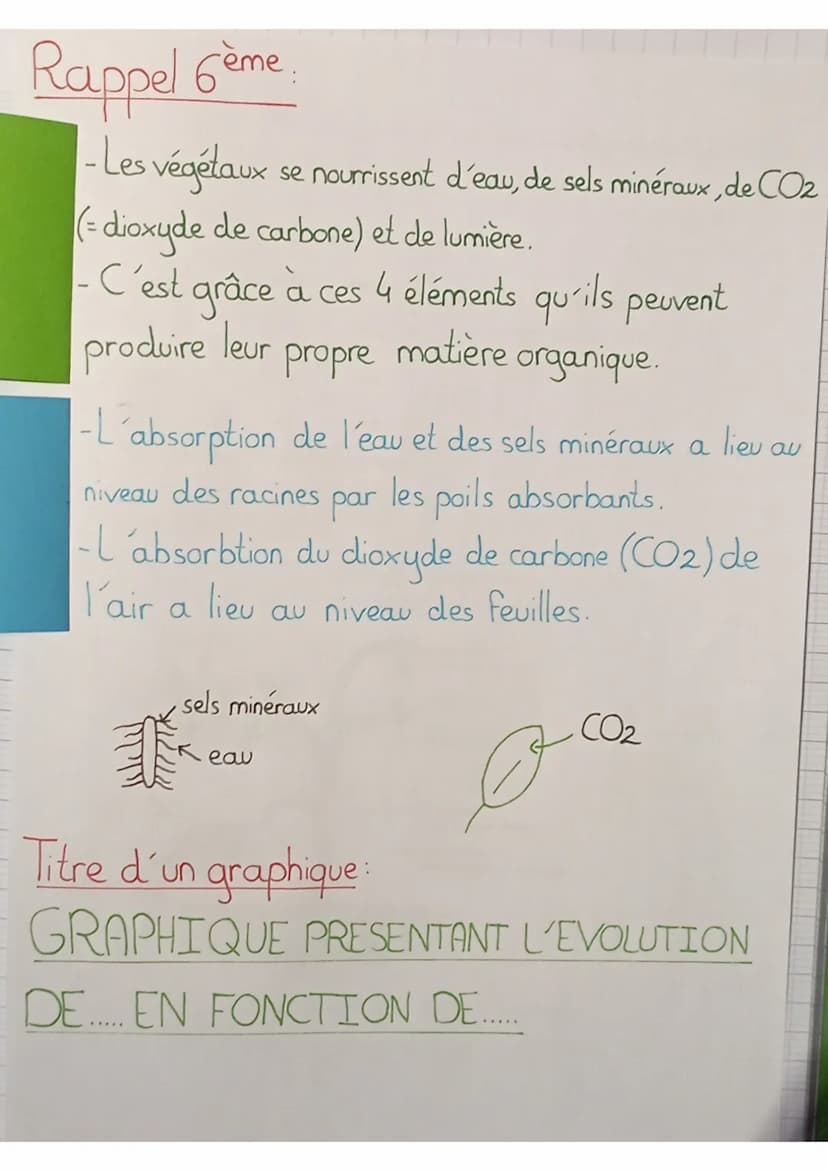 Rappel 6ème:
- Les végétaux se nourrissent d'eau, de sels minéraux, de CO2
(= dioxyde de carbone) et de lumière.
- C'est grâce à ces 4 éléments qu'ils peuvent
produire leur propre matière organique.
- L'absorption de l'eau et des sels minéraux a lieu au
niveau des racines par les poils absorbants.
- L'absorbtion du dioxyde de carbone (CO2) de
l'air a lieu au niveau des feuilles.
sels minéraux
eau
CO2
Titre d'un graphique:
GRAPHIQUE PRESENTANT L'EVOLUTION
DE..... EN FONCTION DE.....